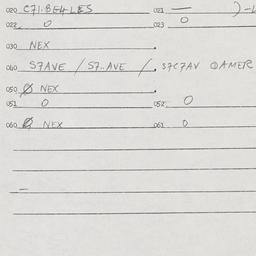 020 C71.BE4LES 021 — )-L
022 0 023 0
030 NEX
040 S7AVE / S7..AVE / S7C7AV DAMER
050 0 NEX
051 0 052 0
060 0 NEX 061 0